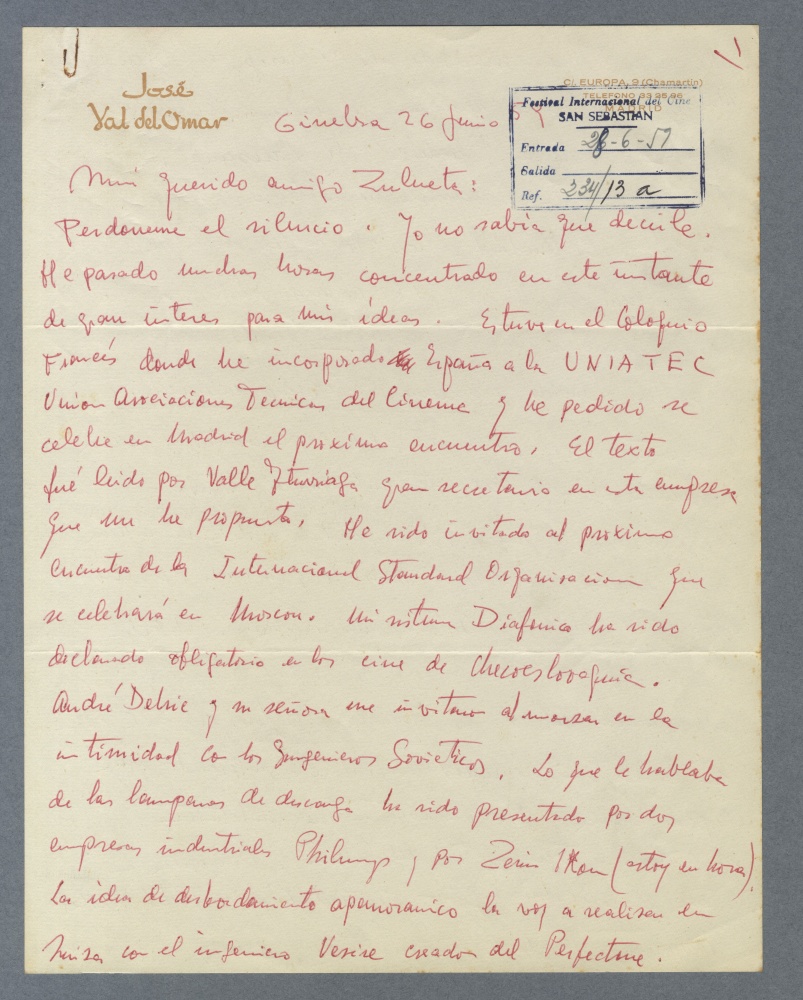 José
Val del Omar
C/. EUROPA, 9 (Chamartín)
TELEFONO 33 95 96
MADRID
Festival Internacional del Cine
SAN SEBASTIAN
Entrada 28-6-57
Salida
Ref. 234/13 a
Ginebra 26 Junio 57
Mui querido amigo Zulueta:
Perdoneme el silencio. Yo no sabía que decirle.
He pasado muchas horas concentrado en este instante
de gran interes para mis ideas. Estuve en el Coloquio
Francés donde he incorporado España a la UNIATEC
Union Asociaciones Tecnicas del Cinema y he pedido se
celebre en Madrid el proximo encuentro. El texto
fué leido por Valle Yturriaga gran secretario en esta empresa
que me he propuesto. He sido invitado al proximo
encuentro de la Internacional Standard Organisacion que
se celebrará en Moscou. Mi sistema Diafonico ha sido
declarado obligatorio en los cine de Checoeslovaquia.
André Debrie y su señora me invitaron almorzar en la
intimidad con los Yngenieros Sovieticos. Lo que le hablaba
de las lamparas de descarga ha sido presentado por dos
empresas industriales Philimps y por Zeiss Ikon (estoy en hora).
La idea de desbordamiento apanoramico la voy a realizar en
Suiza con el ingeniero creador del Perfectone.